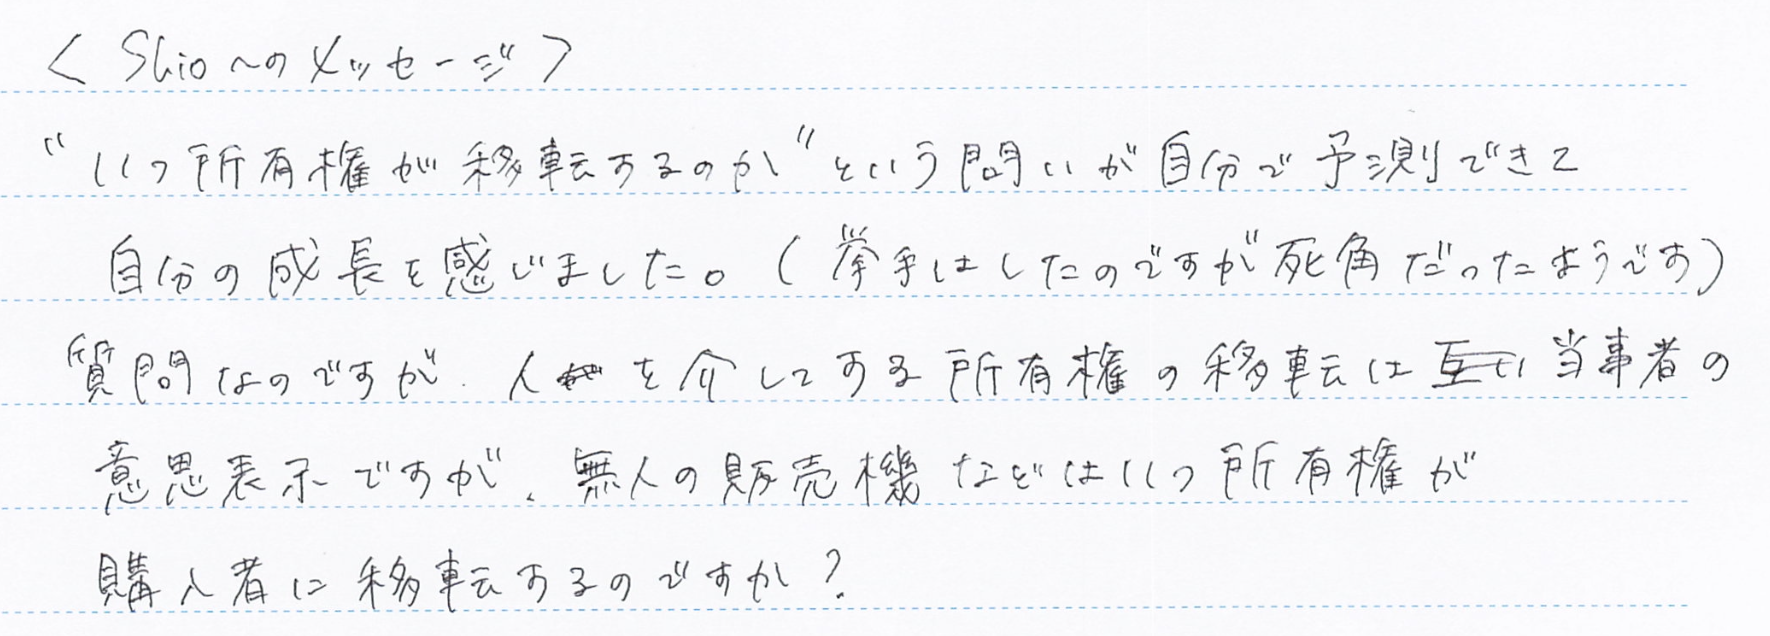 <Shioへのメッセージ>
"いつ所有権が移転するのか"という問いが自分で予測できて
自分の成長を感じました。(挙手はしたのですが死角だったようです)
質問なのですが、人を介してする所有権の移転は互い当事者の
意思表示ですが、無人の販売機などはいつ所有権が
購入者に移転するのですか?